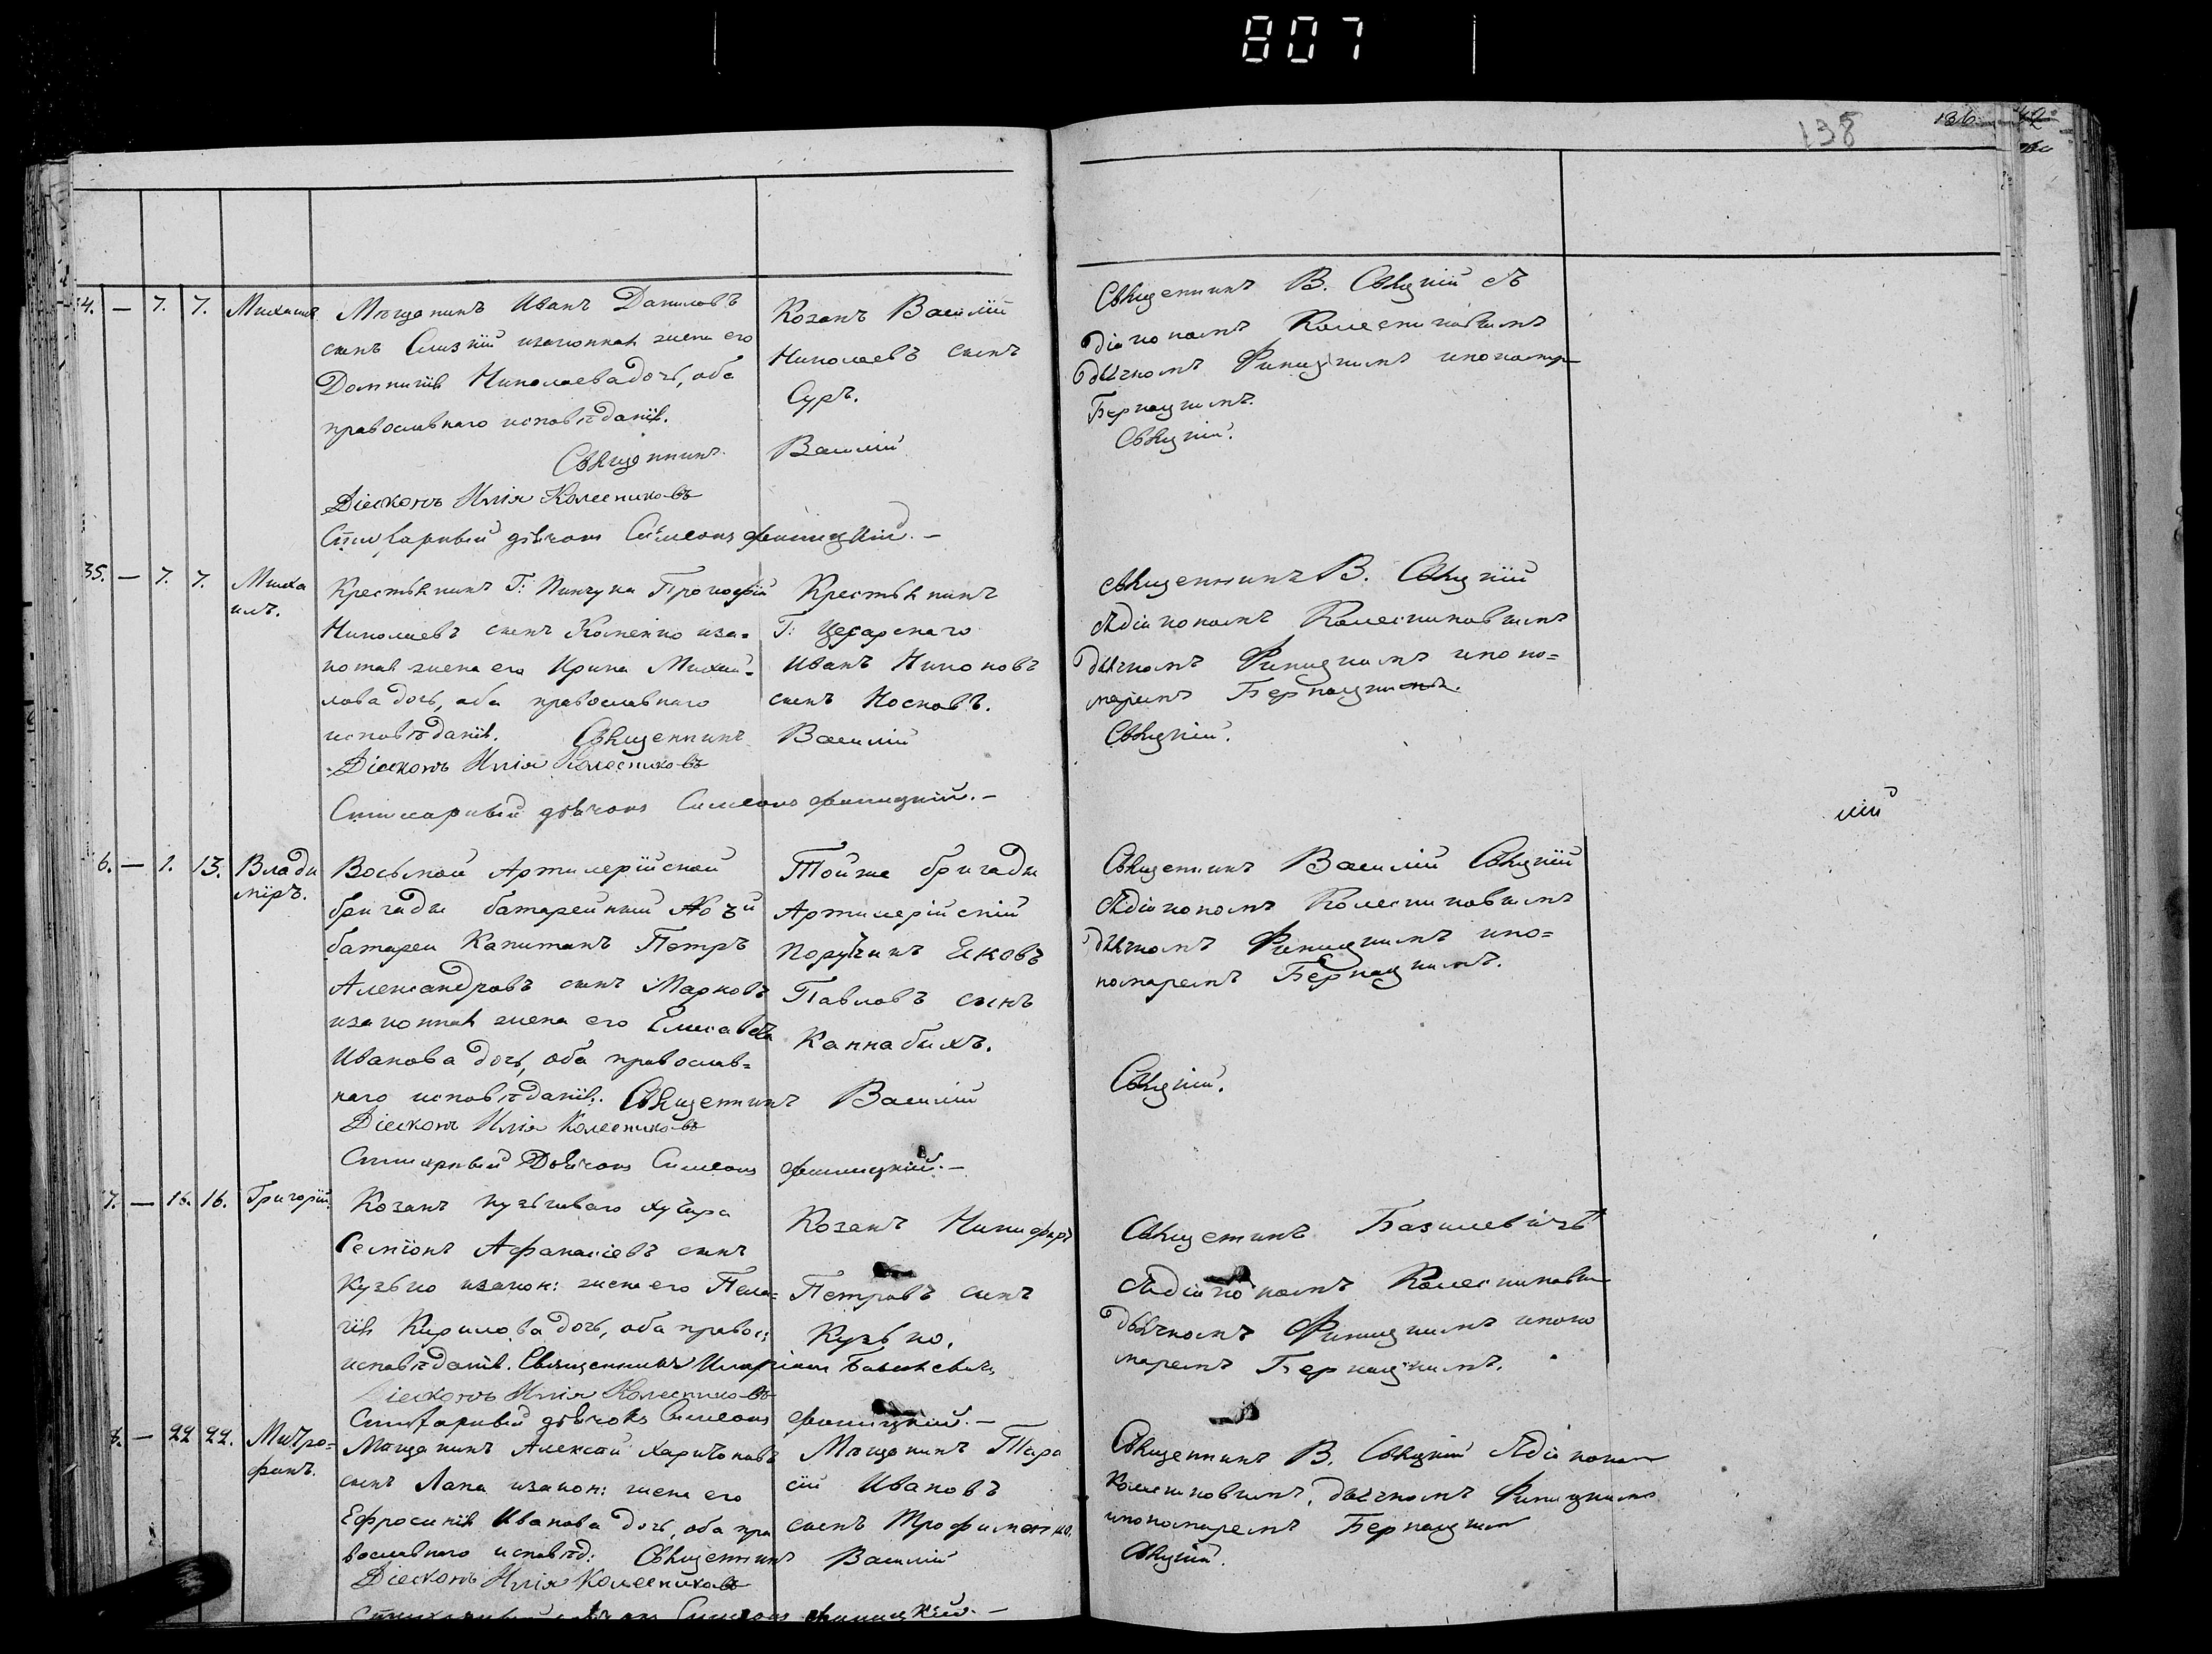 807
138
136.
34. — 7. 7. Михаилъ
Мѣщанинъ Иванъ Даниловъ
сынъ Слизкій изаконная жена его
Домникія Николаева дочь, оба
православнаго исповѣданія.
Священникъ
Діаконъ Илія Колесниковъ
Стихарный дьячокъ Симеонъ Финицкій. —
Козакъ Василій
Николаевъ сынъ
Суръ.
Василій
Священникъ В. Свѣцкій съ
діакономъ Колесниковымъ
дьячкомъ Финицкимъ ипоном
Бернацкимъ.
Свѣцкій.
35. — 7. 7. Миха
илъ.
Крестьянинъ Г: Пинчука Прокофій
Николаевъ сынъ Коменко иза-
конная жена его Ирина Михай-
лова дочь, оба православнаго
исповѣданія. Священникъ
Діаконъ Илія Колесниковъ
Стихарный дьячокъ Симеонъ Финицкій. —
Крестьянинъ
Г: Цесарскаго
Иванъ Никоновъ
сынъ Носковъ.
Василій
священникъ В. Свѣцкій
съ діакономъ Колесниковымъ
дьячкомъ Финицкимъ ипоно=
маремъ Бернацкимъ.
Свѣцкій.
6. — 1. 13. Влади
міръ.
Восьмой Артилерійской
бригады батарейный
батареи Капитанъ Петръ
Александровъ сынъ Марковъ
изаконная жена его Елисавета
Иванова дочь, оба православ=
наго исповѣданія. Священникъ
Діаконъ Илія Колесниковъ
Стихарный Дьячокъ Симеонъ Финицкій. —
Тойже бригады
Артилерійскій
Поручикъ Яковъ
Павловъ сынъ
Каннабихъ.
Василій
Священникъ Василій Свѣцкій
съ діакономъ Колесниковымъ
дьячкомъ Финицкимъ ипо=
номаремъ Бернацкимъ.
Свѣцкій.
7. — 15. 16. Григорій.
Козакъ хутора
Семіонъ Афанасіевъ сынъ
Кузько изакон: жена его Пела=
гія Кирилова дочь, оба правос:
исповѣданія. Священникъ Иларіонъ Базилевичъ
Діаконъ Илія Колесниковъ
Стихарный дьячокъ Симеонъ Финицкій. —
Козакъ Никифоръ
Петровъ сынъ
Кузько.
Священикъ Базилевичъ
съ діакономъ Колесниковым
дьячкомъ Финицкимъ ипоно
маремъ Бернацкимъ.
8. — 22 22. Митро=
фанъ.
Мѣщанинъ Алексѣй Харитоновъ
сынъ Лапа изакон: жена его
Ефросинія Иванова дочь, оба пра
вославнаго исповѣд: Священникъ
Діаконъ Илія Колесниковъ
Стихарный дьячокъ Симеонъ Финицкій. —
Мѣщанинъ Тара
сій Ивановъ
сынъ Трофименко.
Василій
Священникъ В. Свѣцкій съ діаконом
Колесниковымъ, дьячкомъ Финицкимъ
ипономаремъ Бернацким
Свѣцкій.
лій